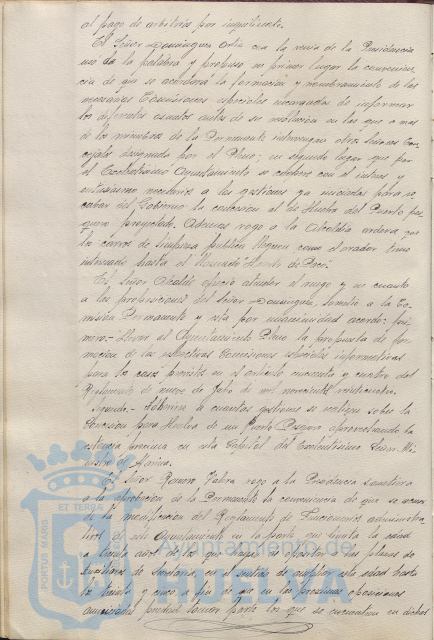 al pago de arbitrios por inquilinato.
El Señor Domínguez Ortiz con la venia de la Presidencia
usó de la palabra y propuso en primer lugar la convenien-
cia de que se acordara la formación y nombramiento de las
necesarias Comisiones especiales encargadas de informar
los diferentes asuntos antes de su resolución en las que a mas
de los miembros de la Permanente intervengan otros Señores Con-
cejales designados por el Pleno; en segundo lugar que por
el Excelentísimo Ayuntamiento se coopere con el interes y
entusiasmo necesarios a las gestiones ya iniciadas para re-
cabar del Gobierno la concesion al de Huelva del Puerto pes-
quero proyectado. Ademas rogó a la Alcaldia ordenara que
los carros de limpieza publica lleguen como el orador tiene
interesado hasta el
El Señor Alcalde ofreció atender el ruego y en cuanto
a las proposiciones del Señor Domínguez, sometio a la Co-
misión Permanente y esta por unanimidad acordó: pri-
mero.- Llevar al Ayuntamiento Pleno la propuesta de for-
mación de las respectivas Comisiones especiales informativas
para los casos previstos en el artículo cincuenta y cuatro del
Reglamento de nueve de Julio de mil novecientos veinticuatro.
Segundo.- Adherirse a cuantas gestiones se realicen sobre la
Concesion para Huelva de un Puerto Pesquero aprovechando la
estancia proxima en esta Capital del Excelentísimo Señor Mi-
nistro de Marina.
El Señor Romero rogó a la Presidencia sometiera
a la aprobación de la Permanente la conveniencia de que se acuer-
de la modificación del Reglamento de Funcionarios administra-
tivos de este Ayuntamiento en la parte que limita la edad
a treinta años de los que hayan de opositar a las plazas de
Auxiliares de Secretaria, en el sentido de ampliar esta edad hasta
los treinta y cinco a fin de que en las proximas oposiciones
anunciadas puedan tomar parte los que se encuentren en dichas
PORTUS MARIS
ET TERRAE
Ayuntamiento de
HUELVA